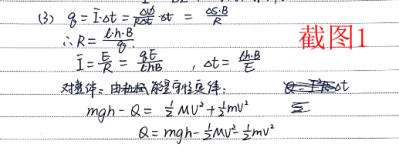 (3) q = Ī·Δt = ΔΦ/RΔt ·Δt = ΔS·B/R
截图1
∴R = L·h·B/q
Ī = E/R = qE/LhB , Δt = Lh·B/E
对整体：由 能量守恒定律：
Δt
mgh - Q = ½MV² + ½mv²
Q = mgh - ½MV² - ½mv²